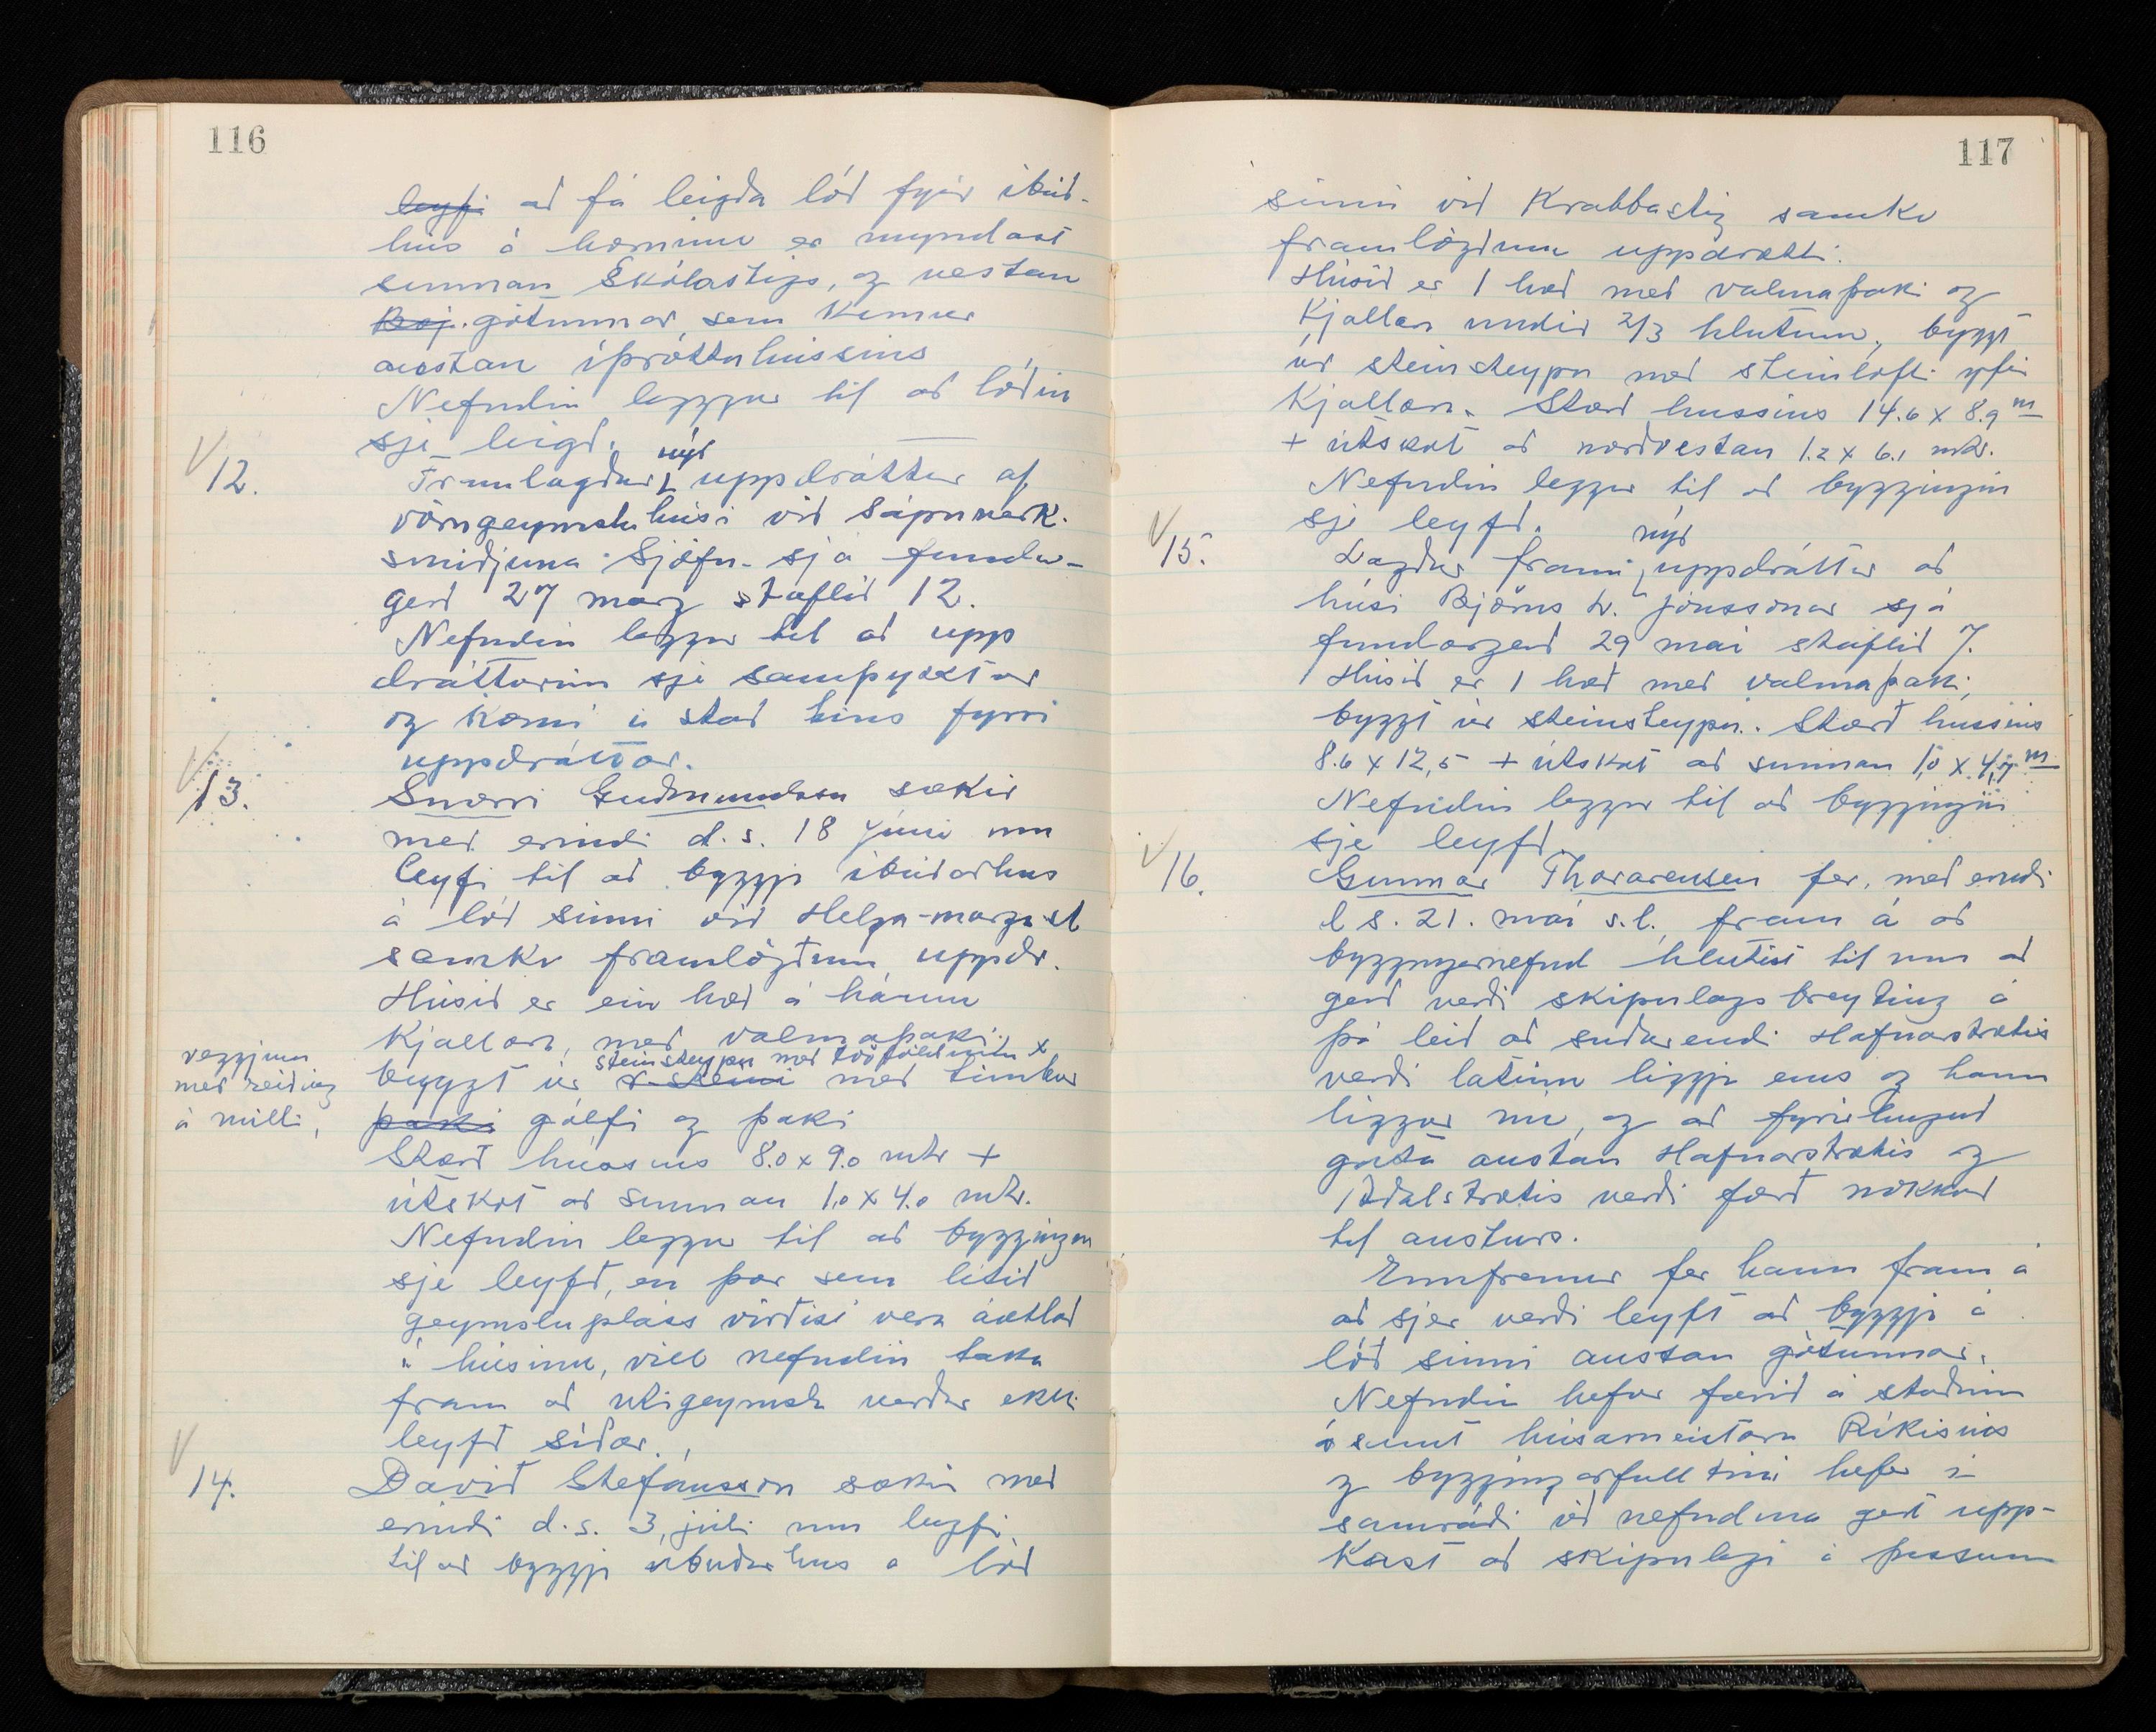 116
leyfi að fá leigða lóð fyrir íbúð-
hús á horninu er myndast
sunnan Skólastigs, og vestan
Bój. götunnar, sem kemur
austan íþróttahússins
Nefndin leggur til að lóðin
sje leigð.
nýr
12. Framlagður uppdráttur af
vörugeymsluhúsi við sápuverk-
smiðjuna Sjöfn - sjá funda-
gerð 27 marz staflið 12.
Nefndin leggur til að upp
drátturinn sje samþykktur
og komi í stað hins fyrri
uppdráttar.
13. Snorri Guðmundsson sækir
með erindi d.s. 18 júni um
leyfi til að byggja íbúðarhús
á lóð sinni við Helga-magra st
samkv framlögðum uppdr.
Húsið er ein hæð á háum
kjallara, með valmaþaki.
steinsteypu með tvöföldum x
byggt úr r-steini með timbur
þaki gólfi og þaki
veggjum
með reiðing
á milli,
Stærð hússins 8.0 x 9.0 mtr +
útskot að sunnan 1.0 x 4.0 mtr.
Nefndin leggur til að byggingin
sje leyfð, en þar sem lítið
geymslupláss virðist vera áætlað
í húsinu, vill nefndin taka
fram að útigeymsla verður ekki
leyfð síðar.
14. Davíð Stefánsson sækir með
erindi d.s. 3. júlí um leyfi
til að byggja íbúðarhús á lóð
117
sinni við Krabbastig samkv
framlögðum uppdrætti.
Húsið er 1 hæð með valmaþaki og
kjallara undir 2/3 hlutum, byggt
úr steinsteypu með steinlofti yfir
kjallara. Stærð hússins 14.6 x 8.9 m
+ útskot að norðvestan 1.2 x 6.1 mtr.
Nefndin leggur til að byggingin
sje leyfð.
nýr
15. Lagður fram uppdráttur að
húsi Björns Jónssonar sjá
fundargerð 29 maí staflið 7.
Húsið er 1 hæð með valmaþaki,
byggt úr steinsteypu. Stærð hússins
8.6 x 12,5 + útskot að sunnan 1,0 x 4,7 m
Nefndin leggur til að byggingin
sje leyfð.
16. Gunnar Thorarensen fer, með erindi
d s. 21. maí s.l. fram á að
byggingarnefnd hlutist til um að
gerð verði skipulagsbreyting á
þá leið að suðurendi Hafnarstrætis
verði látinn liggja eins og hann
liggur nú, og að fyrirhuguð
gata austan Hafnarstrætis og
Aðalstrætis verði færð nokkuð
til austurs.
Ennfremur fer hann fram á
að sjer verði leyft að byggja á
lóð sinni austan götunnar.
Nefndin hefur farið á staðinn
ásamt húsameistara Ríkisins
og byggingarfulltrúi hefur í
samráði við nefndina gert upp-
kast að skipulagi á þessum